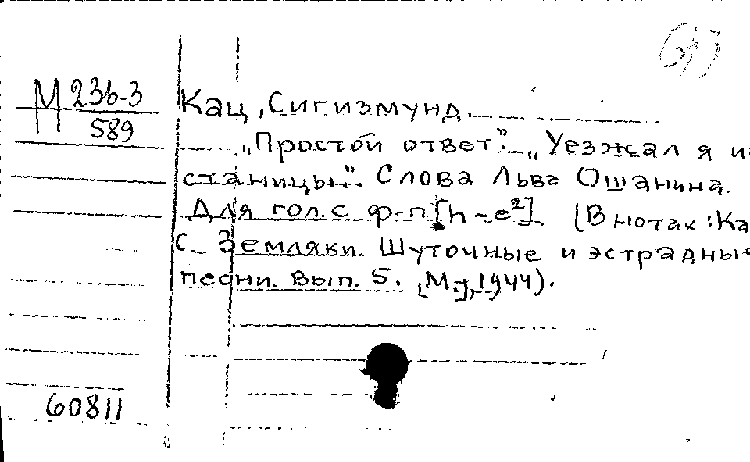 М 236-3
589
Кац, Сигизмунд.
„Простой ответ". „Уезжал я из
станицы". Слова Льва Ошанина.
Для гол. с ф-п [h - e²]. (В нотах: Ка
с. Земляки. Шуточные и эстрадные
песни. Вып. 5. [М.], 1944).
60811